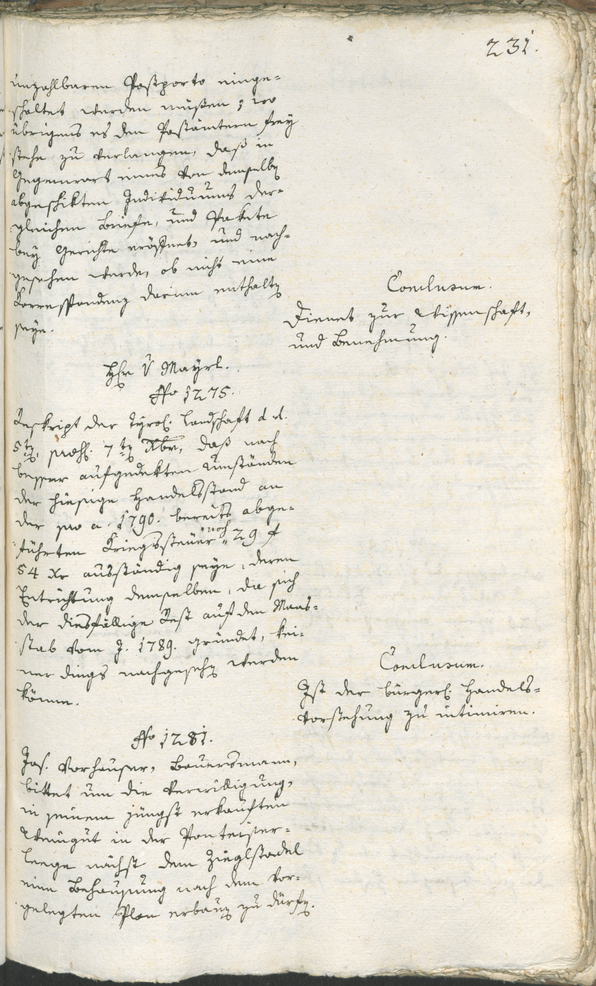 231.
unzahlbaren Postporto einge-
schaltet werden müßen; wo
übrigens es den Postämtern frey
stehe zu verlangen, daß in
Gegenwart eines von demselb
abgeschikten Individuums der-
gleichen Briefe, und Pakete
bey Gericht eröfnet, und nach-
gesehen werde, ob nicht eine
Korrespondenz darinn enthalt
seye.
Conclusum.
Dienet zur Wissenschaft,
und Benehmung.
Hr. v Mayrl.
No 1275.
Reskript der Tyrol. Landschaft d. d.
5t, präs. 7t Xbr, daß nach
besser aufgedekten Umständen
der hiesige Handelsstand an
der pro a. 1790. bereits abge-
führten Kriegssteuer noch 29 f
54 Xr ausständig seye, deren
Entrichtung demselben, da sich
der diesfällige Rest auf den Maas-
stab vom J. 1789. gründet, kei-
ner dings nachgeseh werden
könne.
Conclusum.
Ist der bürgerl. Handels-
Vorstehung zu intimiren.
No 1281.
Jos. Vorhauser, Bauersmann,
bittet um die Verwilligung,
in seinem jüngst erkauften
Weingut in der Ponteiser-
leege nächst dem Zieglstadel
eine Behausung nach dem vor-
gelegten Plan erbau zu dürf.